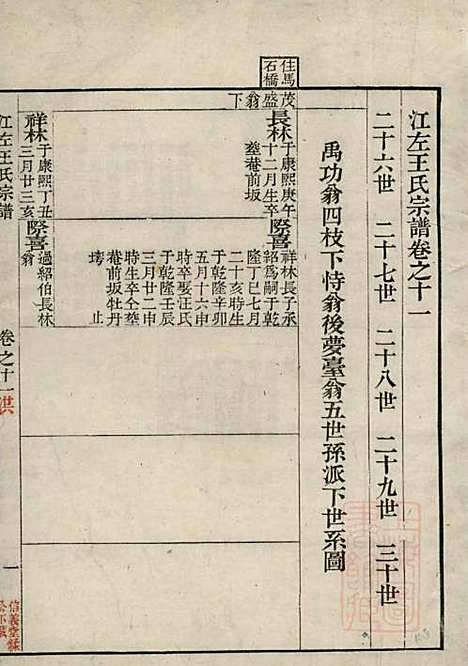 江左王氏宗譜卷之十一
二十六世 二十七世 二十八世 二十九世 三十世
禹功翁四枝下恃翁後夢臺翁五世孫派下世系圖
住馬
石橋
茂盛翁下
長林
于康熙庚午
十二月生卒
塟菴前坂
際喜
祥林長子承
紹為嗣于乾
隆丁巳七月
二十亥時生
于乾隆辛卯
五月十六申
時卒娶汪氏
于乾隆壬辰
三月廿二申
時生卒仝塟
菴前坂牡丹
塆 止
祥林
于康熙丁丑
三月廿三亥
際喜
過紹伯長林
翁
江左王氏宗譜
卷之十一
洪
一
信義堂